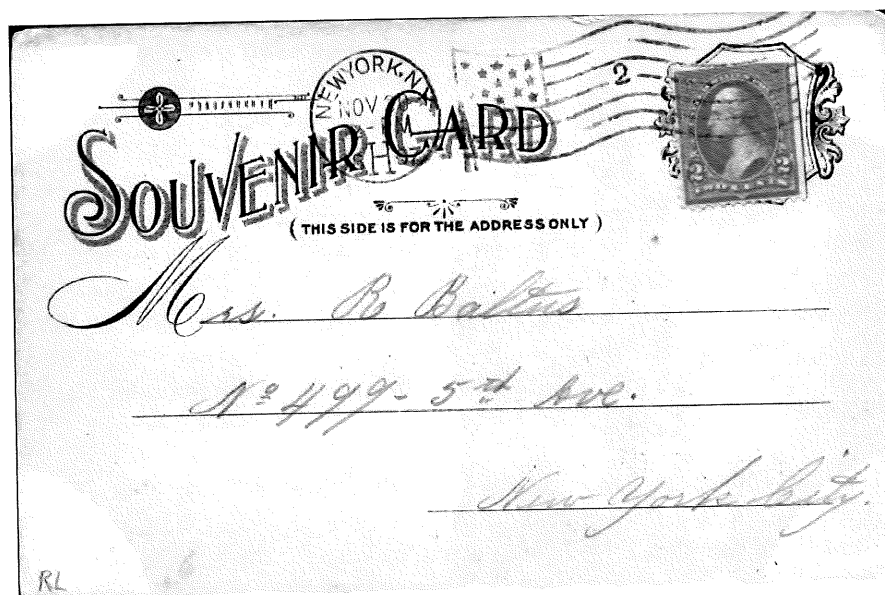 NEW YORK, N.Y.
NOV
H
2
SOUVENIR CARD
(THIS SIDE IS FOR THE ADDRESS ONLY)
2 2
Mrs. R Baltus
No 499 - 5th Ave.
New York City.
RL